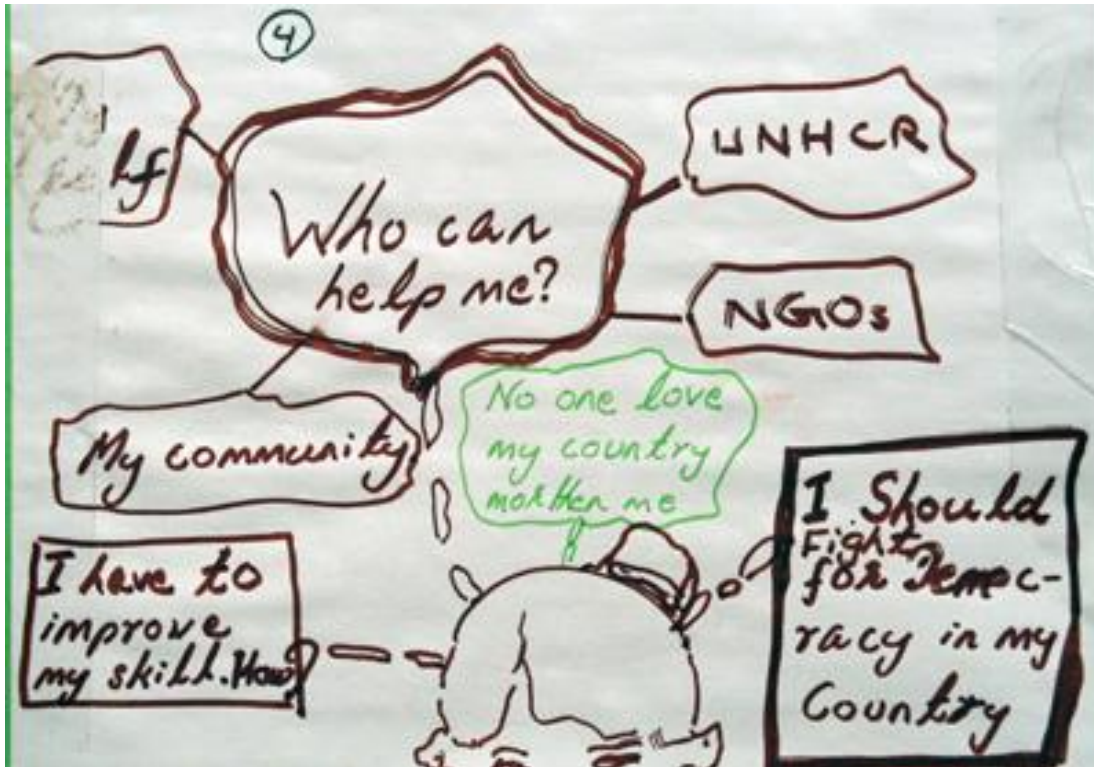 4
lf
Who can
help me?
UNHCR
NGOs
My community
No one love
my country
more then me
I have to
improve
my skill. How?
I Should
Fight
for Democ-
racy in my
Country